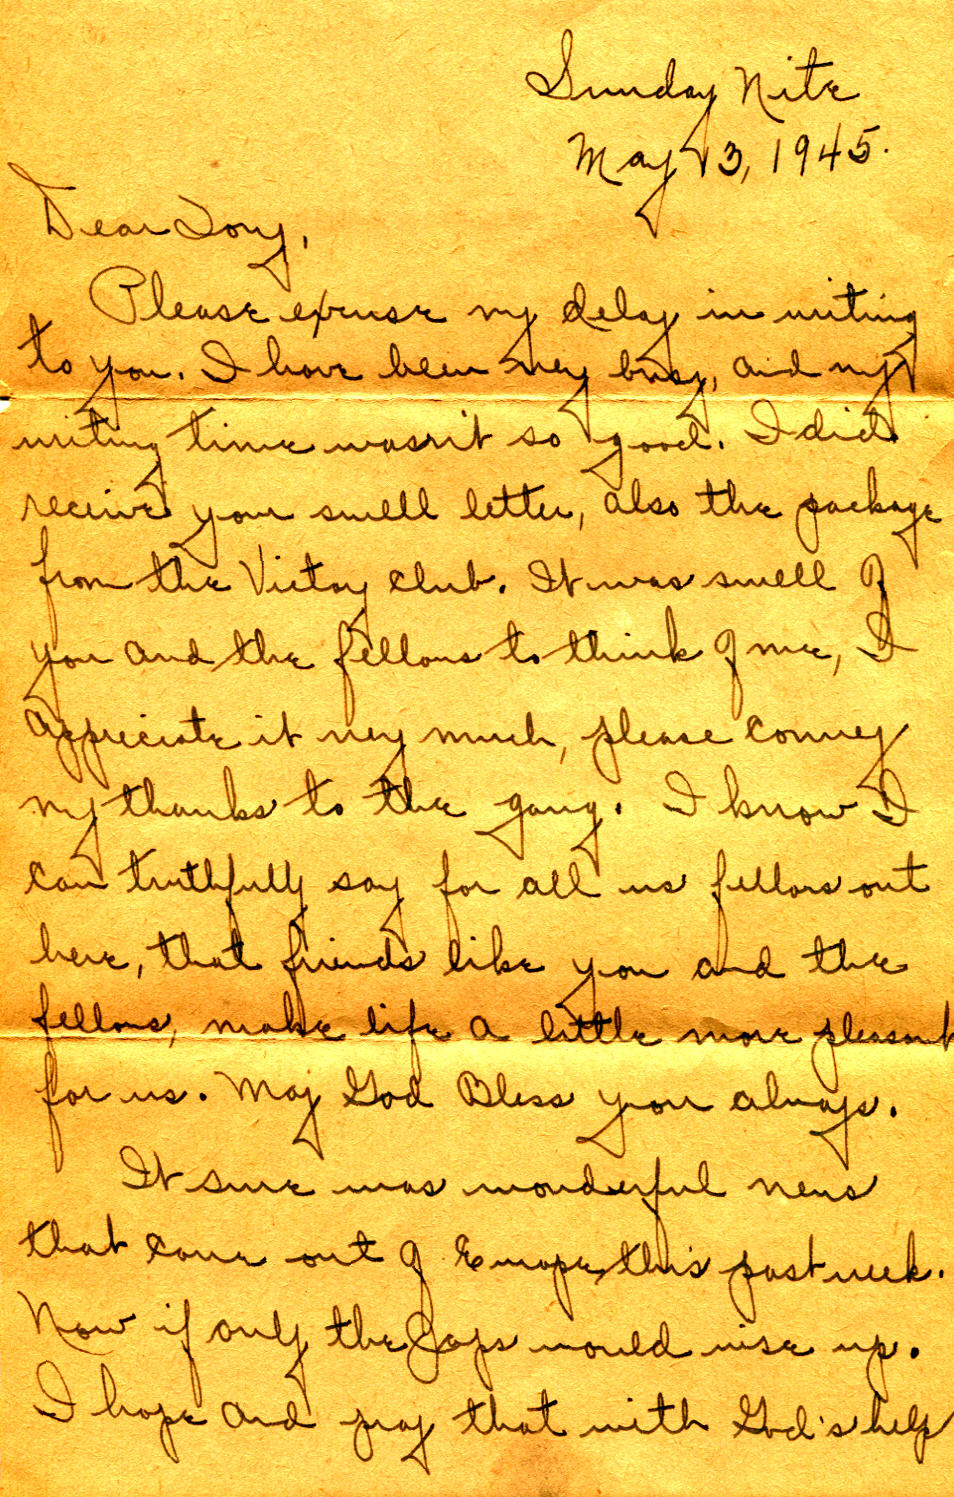 Sunday Nite
May 13, 1945.
Dear Tony,
Please excuse my delay in writing
to you. I have been very busy, and my
writing time wasn't so good. I did
receive your swell letter, also the package
from the Victory Club. It was swell of
you and the fellows to think of me, I
appreciate it very much, please convey
my thanks to the gang. I know I
can truthfully say for all us fellows out
here, that friends like you and the
fellows, make life a little more pleasant
for us. May God Bless you always.
It sure was wonderful news
that came out of Europe, this past week.
Now if only the Japs would wise up.
I hope and pray that with God's help